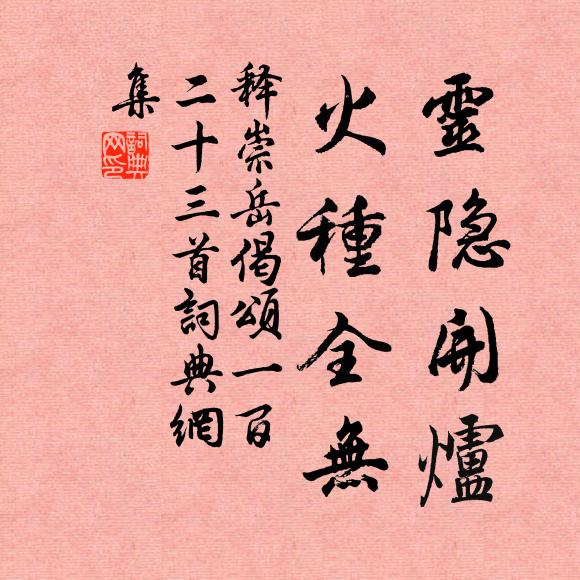 靈隐開爐
火種全無
释崇岳偈頌一百
二十三首詞典網
集
詞典
网印